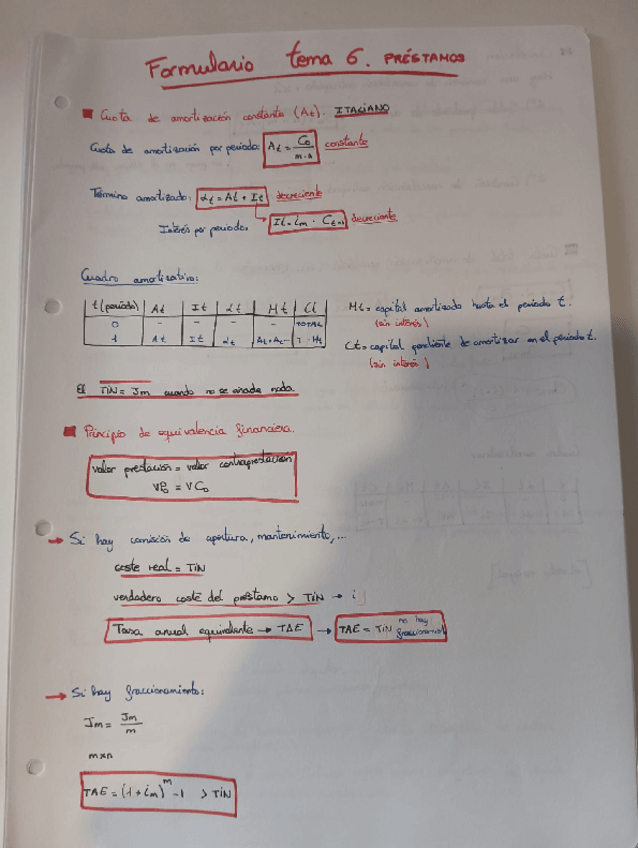 Formulario tema 6. PRÉSTAMOS
■ Cuota de amortización constante (At). ITALIANO
Cuota de amortización por periodo: At = Co / m·n constante
Término amortizado: αt = At + It decreciente
Interés por periodo. It = im · Ct-1 decreciente
Cuadro amortizativo:
t (periodo) At It αt Mt Ct
0 - - - - TOTAL
1 At It αt
Mt = capital amortizado hasta el periodo t.
(sin interés)
Ct = capital pendiente de amortizar en el periodo t.
(sin interés)
El TIN = Jm cuando no se añade nada
■ Principio de equivalencia financiera.
valor prestación = valor contraprestación
VPo = VCo
→ Si hay comisión de apertura, mantenimiento,...
coste real = TIN
verdadero coste del préstamo > TIN → i
Tasa anual equivalente → TAE → TAE = TIN no hay fraccionamiento
→ Si hay fraccionamiento:
Jm = Jm / m
m×n
TAE = (1 + im)^m - 1 > TIN